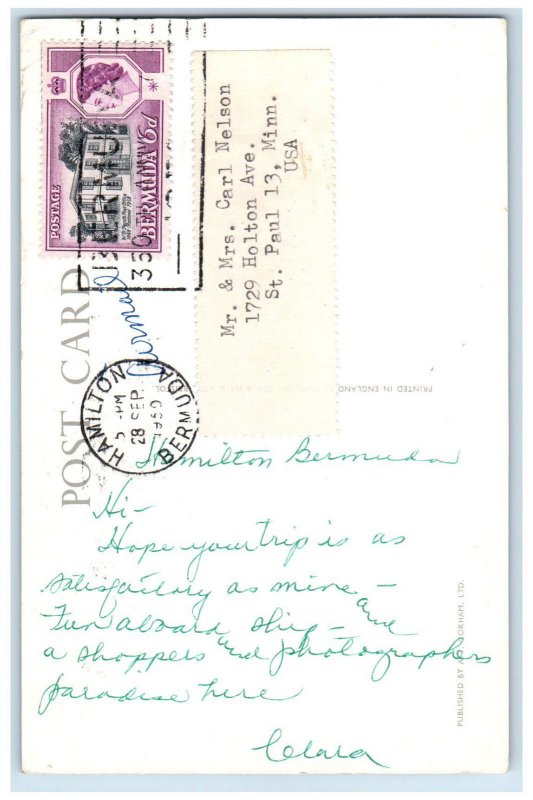 POST CARD
POSTAGE
BERMUDA 6d
350
Airmail
HAMILTON
5 PM
28 SEP
1959
BERMUDA
Mr. & Mrs. Carl Nelson
1729 Holton Ave.
St. Paul 13, Minn.
USA
PRINTED IN ENGLAND
Hamilton Bermuda
Hi-
Hope your trip is as
satisfactory as mine -
Fun aboard ship - and
a shoppers and photographers
paradise here
Clara
PUBLISHED BY A. GORHAM, LTD.